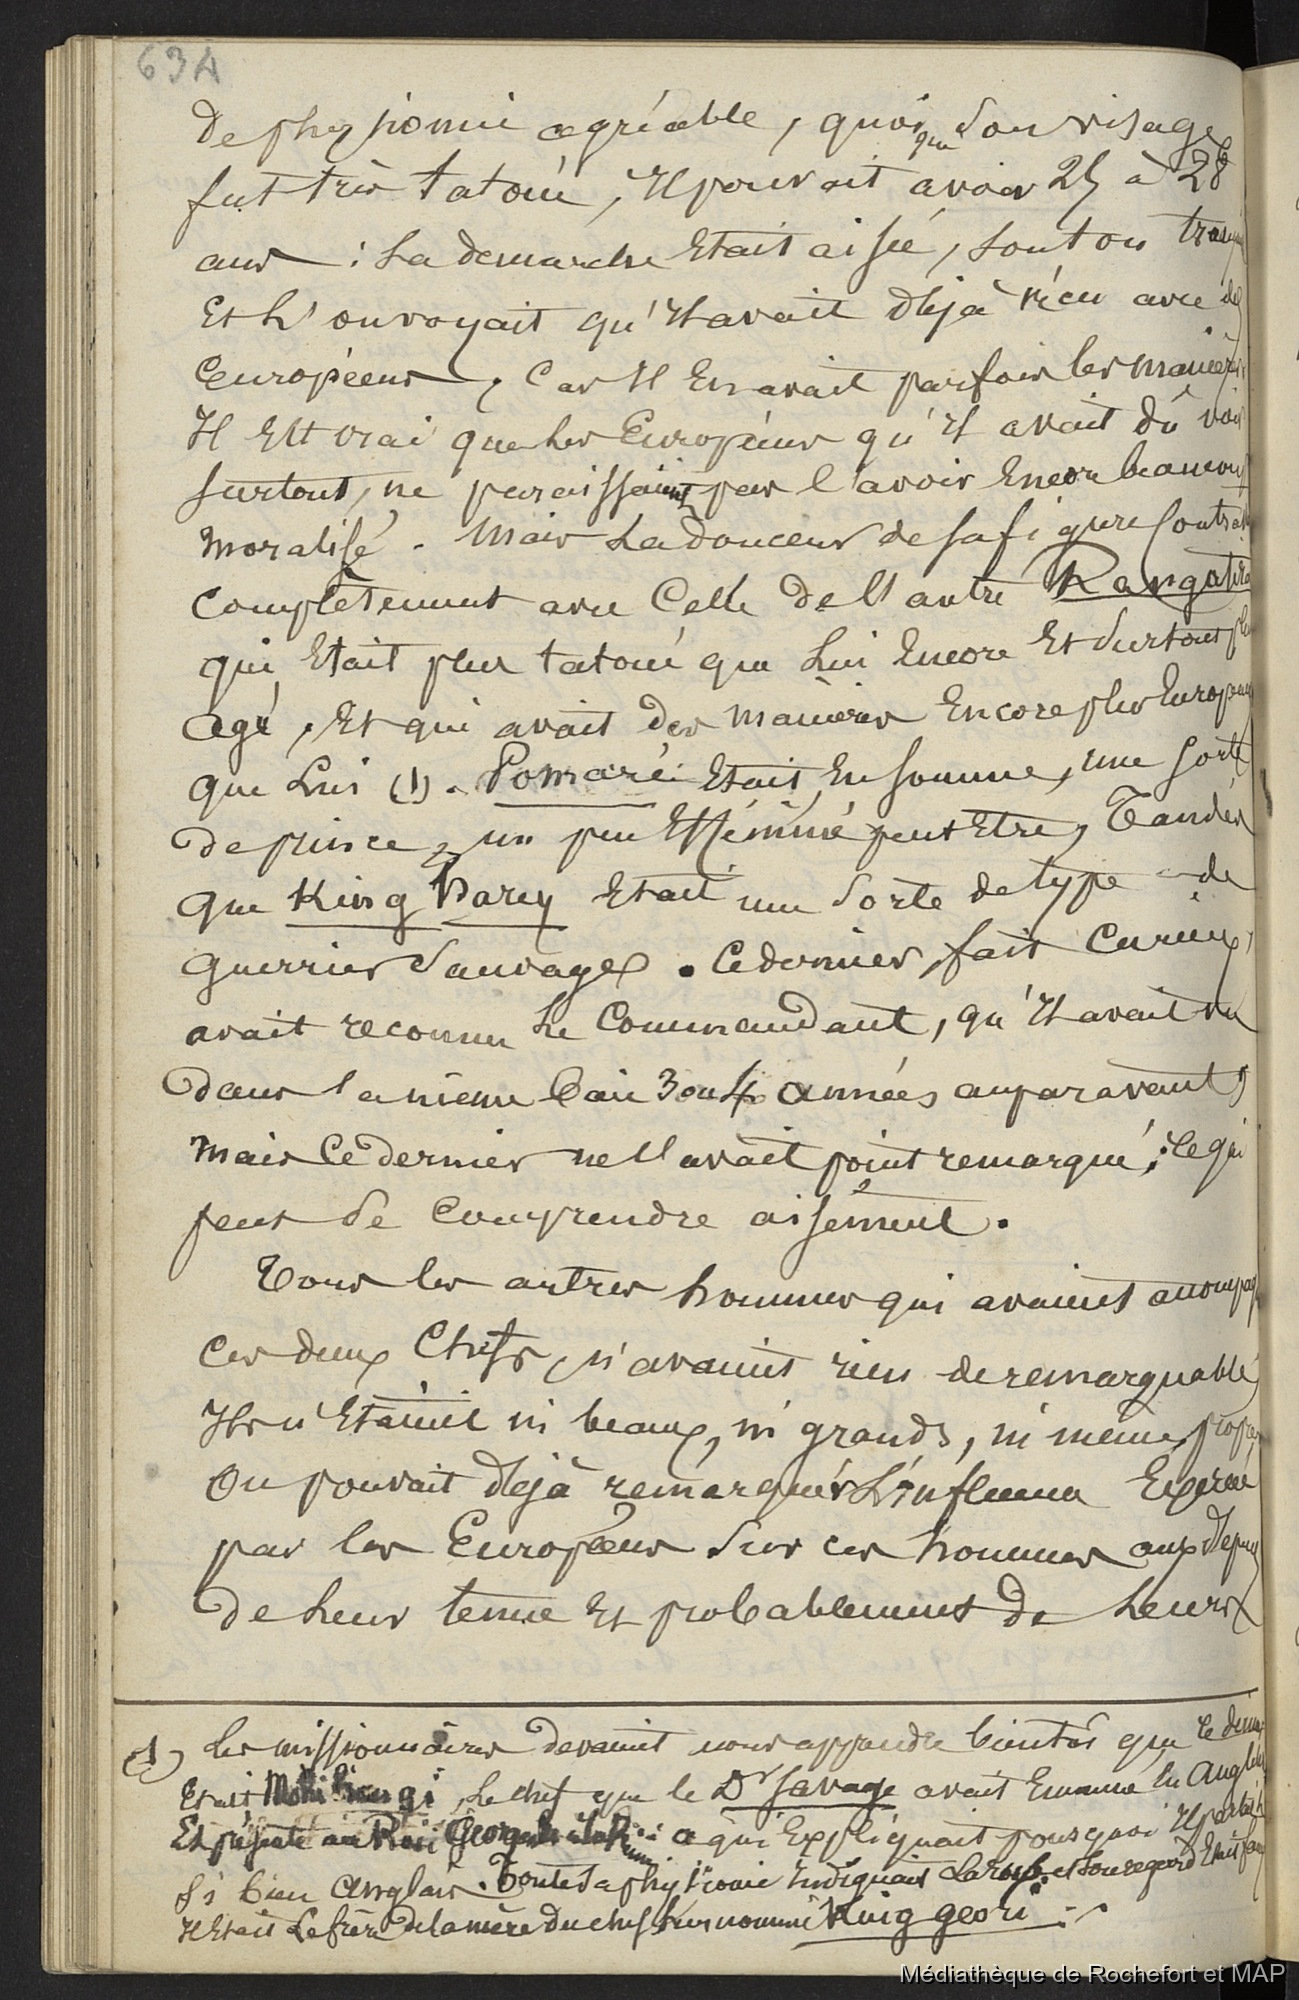 634
de physionomie agréable, quoi que son visage
fut très tatoué, Il pouvait avoir 25 à 28
ans : Sa démarche était aisée, son ton
Et l'on voyait qu'il avait déjà vécu avec des
Européens, Car Il En avait parfois les manières
Il Est vrai que les Européens qu'il avait dû voir
surtout, ne paraissaient pas l'avoir Encore beaucoup
moralisé. Mais La douceur de sa figure
complètement avec Celle de l'autre Rangatira
qui Etait plus tatoué que Lui Encore Et surtout plus
agé, Et qui avait des manières Encore plus
que Lui (1). Pomaré Etait En somme, une sorte
de prince, un peu Efféminé peut Etre, Tandis
que King Hary Etait une sorte de type de
guerrier sauvage. Ce dernier, fait curieux,
avait reconnu Le Commandant, qu'il avait vu
dans la même baie 3 ou 4 années auparavant,
mais Ce dernier ne l'avait point remarqué; Ce qui
peut se comprendre aisément.
Tous les autres hommes qui avaient accompagné
Ces deux Chefs, n'avaient rien de remarquable,
Ils n'Etaient ni beaux, ni grands, ni même propres
On pouvait déjà remarquer L'influence Exercée
par les Européens sur ces hommes aux dépens
de Leur tenue Et probablement de Leurs
(1) Les missionnaires devaient nous apprendre bientôt que ce dernier
Etait le chef que le Dr Savage avait Emmené En Angleterre
Et présenté au Roi Georges ce qui Expliquait pourquoi Il parlait
si bien anglais. Toute sa physionomie Indiquait La ruse et son regard Etait
Il Etait Le frère de la mère du chef surnommé King Geori
Médiathèque de Rochefort et MAP